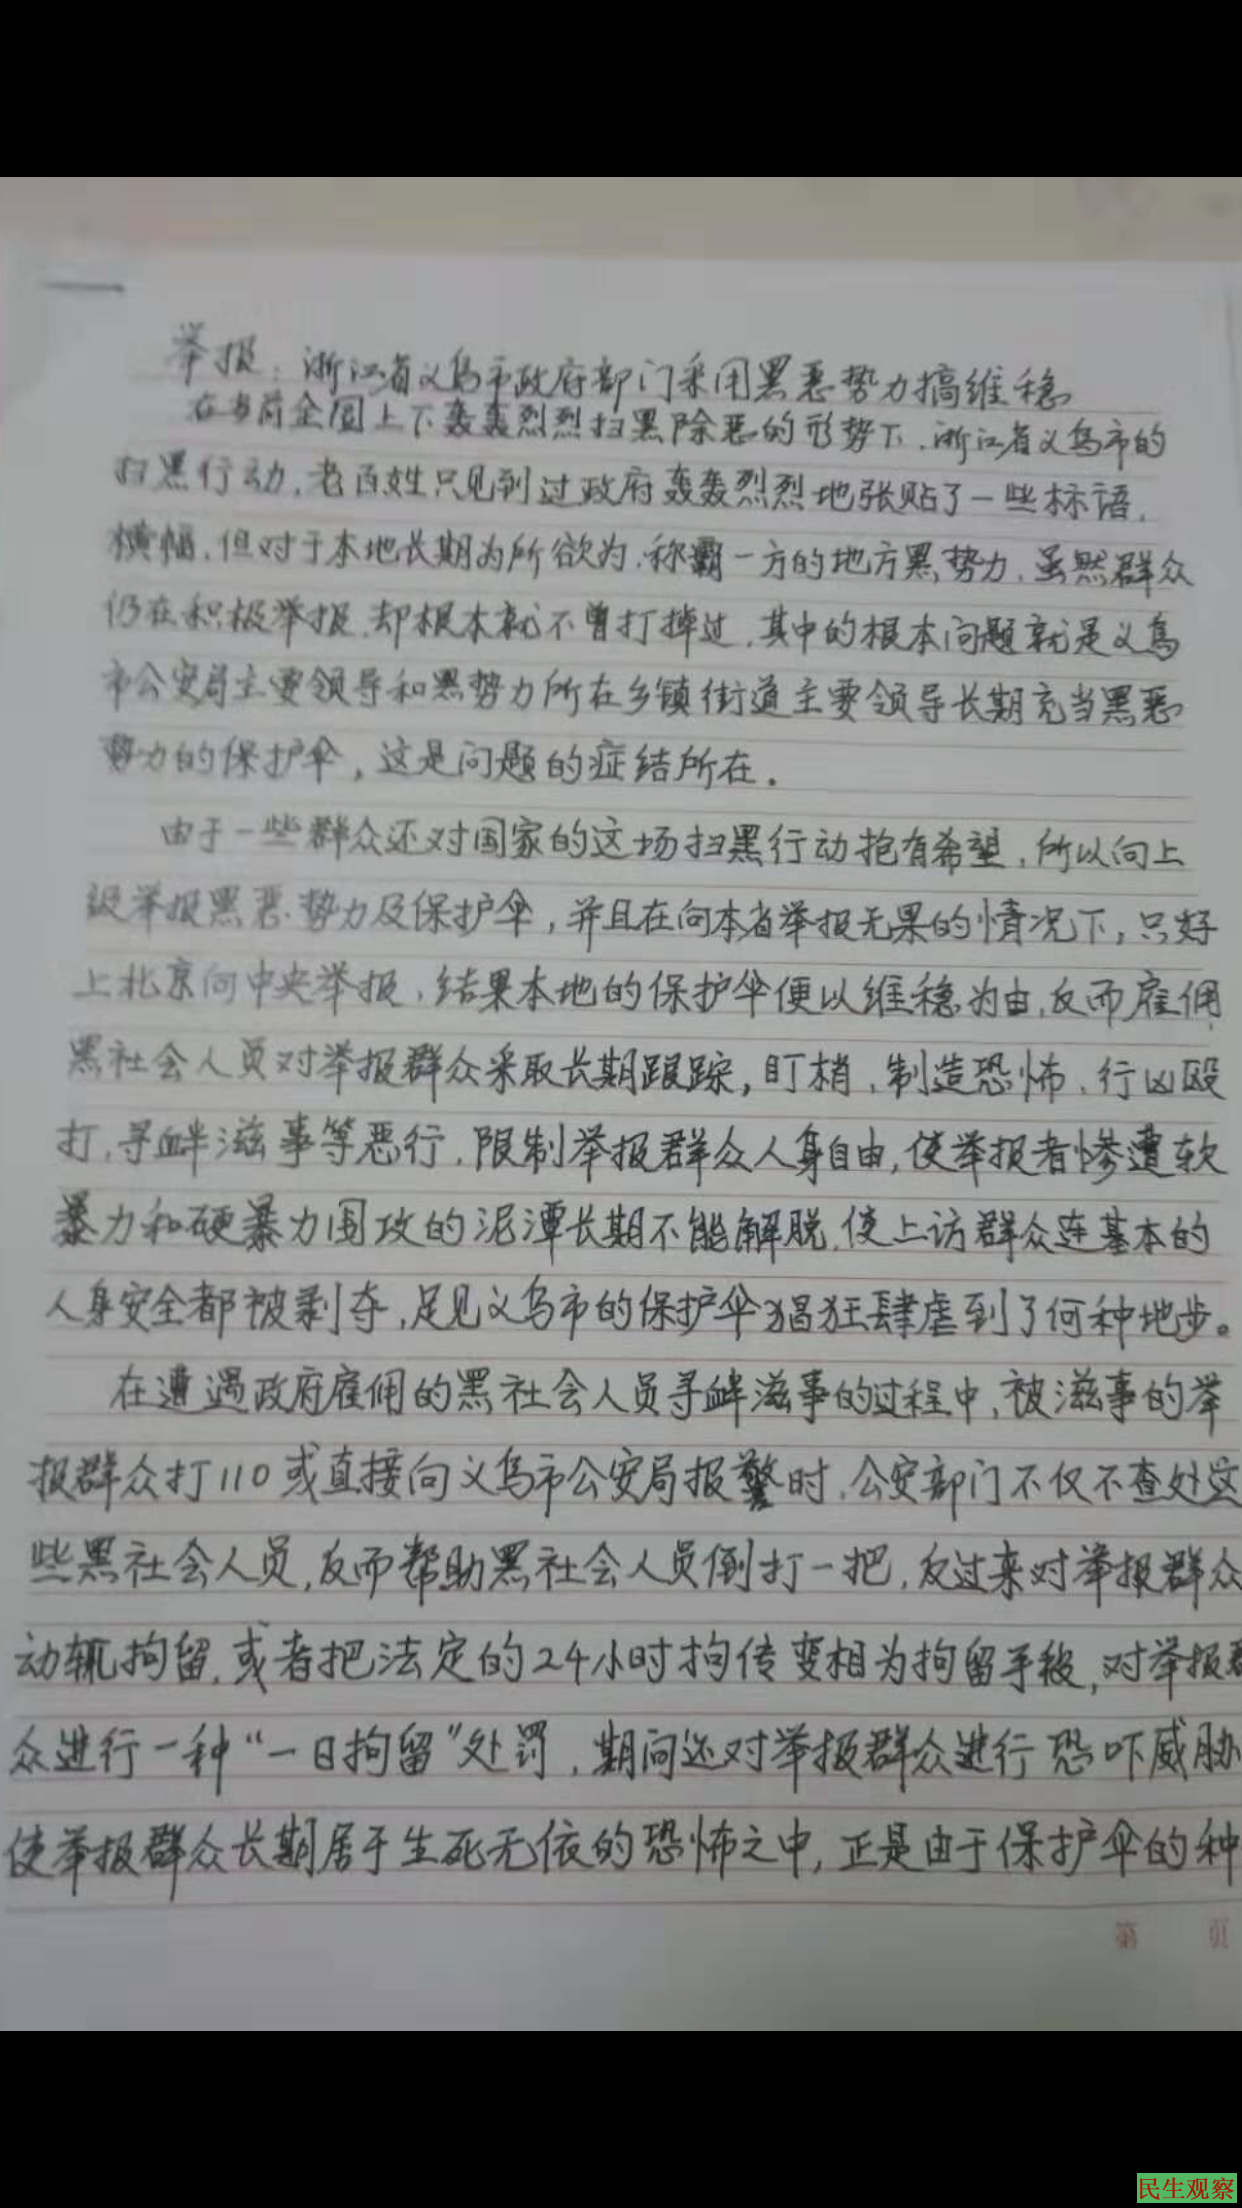 举报：浙江省义乌市政府部门采用黑恶势力搞维稳
在当前全国上下轰轰烈烈扫黑除恶的形势下，浙江省义乌市的
扫黑行动，老百姓只见到过政府轰轰烈烈地张贴了一些标语，
横幅，但对于本地长期为所欲为，称霸一方的地方黑势力，虽然群众
仍在积极举报，却根本就不曾打掉过，其中的根本问题就是义乌
市公安局主要领导和黑势力所在乡镇街道主要领导长期充当黑恶
势力的保护伞，这是问题的症结所在。
由于一些群众还对国家的这场扫黑行动抱有希望，所以向上
级举报黑恶势力及保护伞，并且在向本省举报无果的情况下，只好
上北京向中央举报，结果本地的保护伞便以维稳为由，反而雇佣
黑社会人员对举报群众采取长期跟踪，盯梢，制造恐怖，行凶殴
打，寻衅滋事等恶行，限制举报群众人身自由，使举报者惨遭软
暴力和硬暴力围攻的泥潭长期不能解脱，使上访群众连基本的
人身安全都被剥夺，足见义乌市的保护伞猖狂肆虐到了何种地步。
在遭遇政府雇佣的黑社会人员寻衅滋事的过程中，被滋事的举
报群众打110或直接向义乌市公安局报警时，公安部门不仅不查处这
些黑社会人员，反而帮助黑社会人员倒打一把，反过来对举报群众
动辄拘留，或者把法定的24小时拘传变相为拘留手段，对举报群
众进行一种“一日拘留”处罚，期间还对举报群众进行恐吓威胁
使举报群众长期居于生死无依的恐怖之中，正是由于保护伞的种
第 页
民生观察